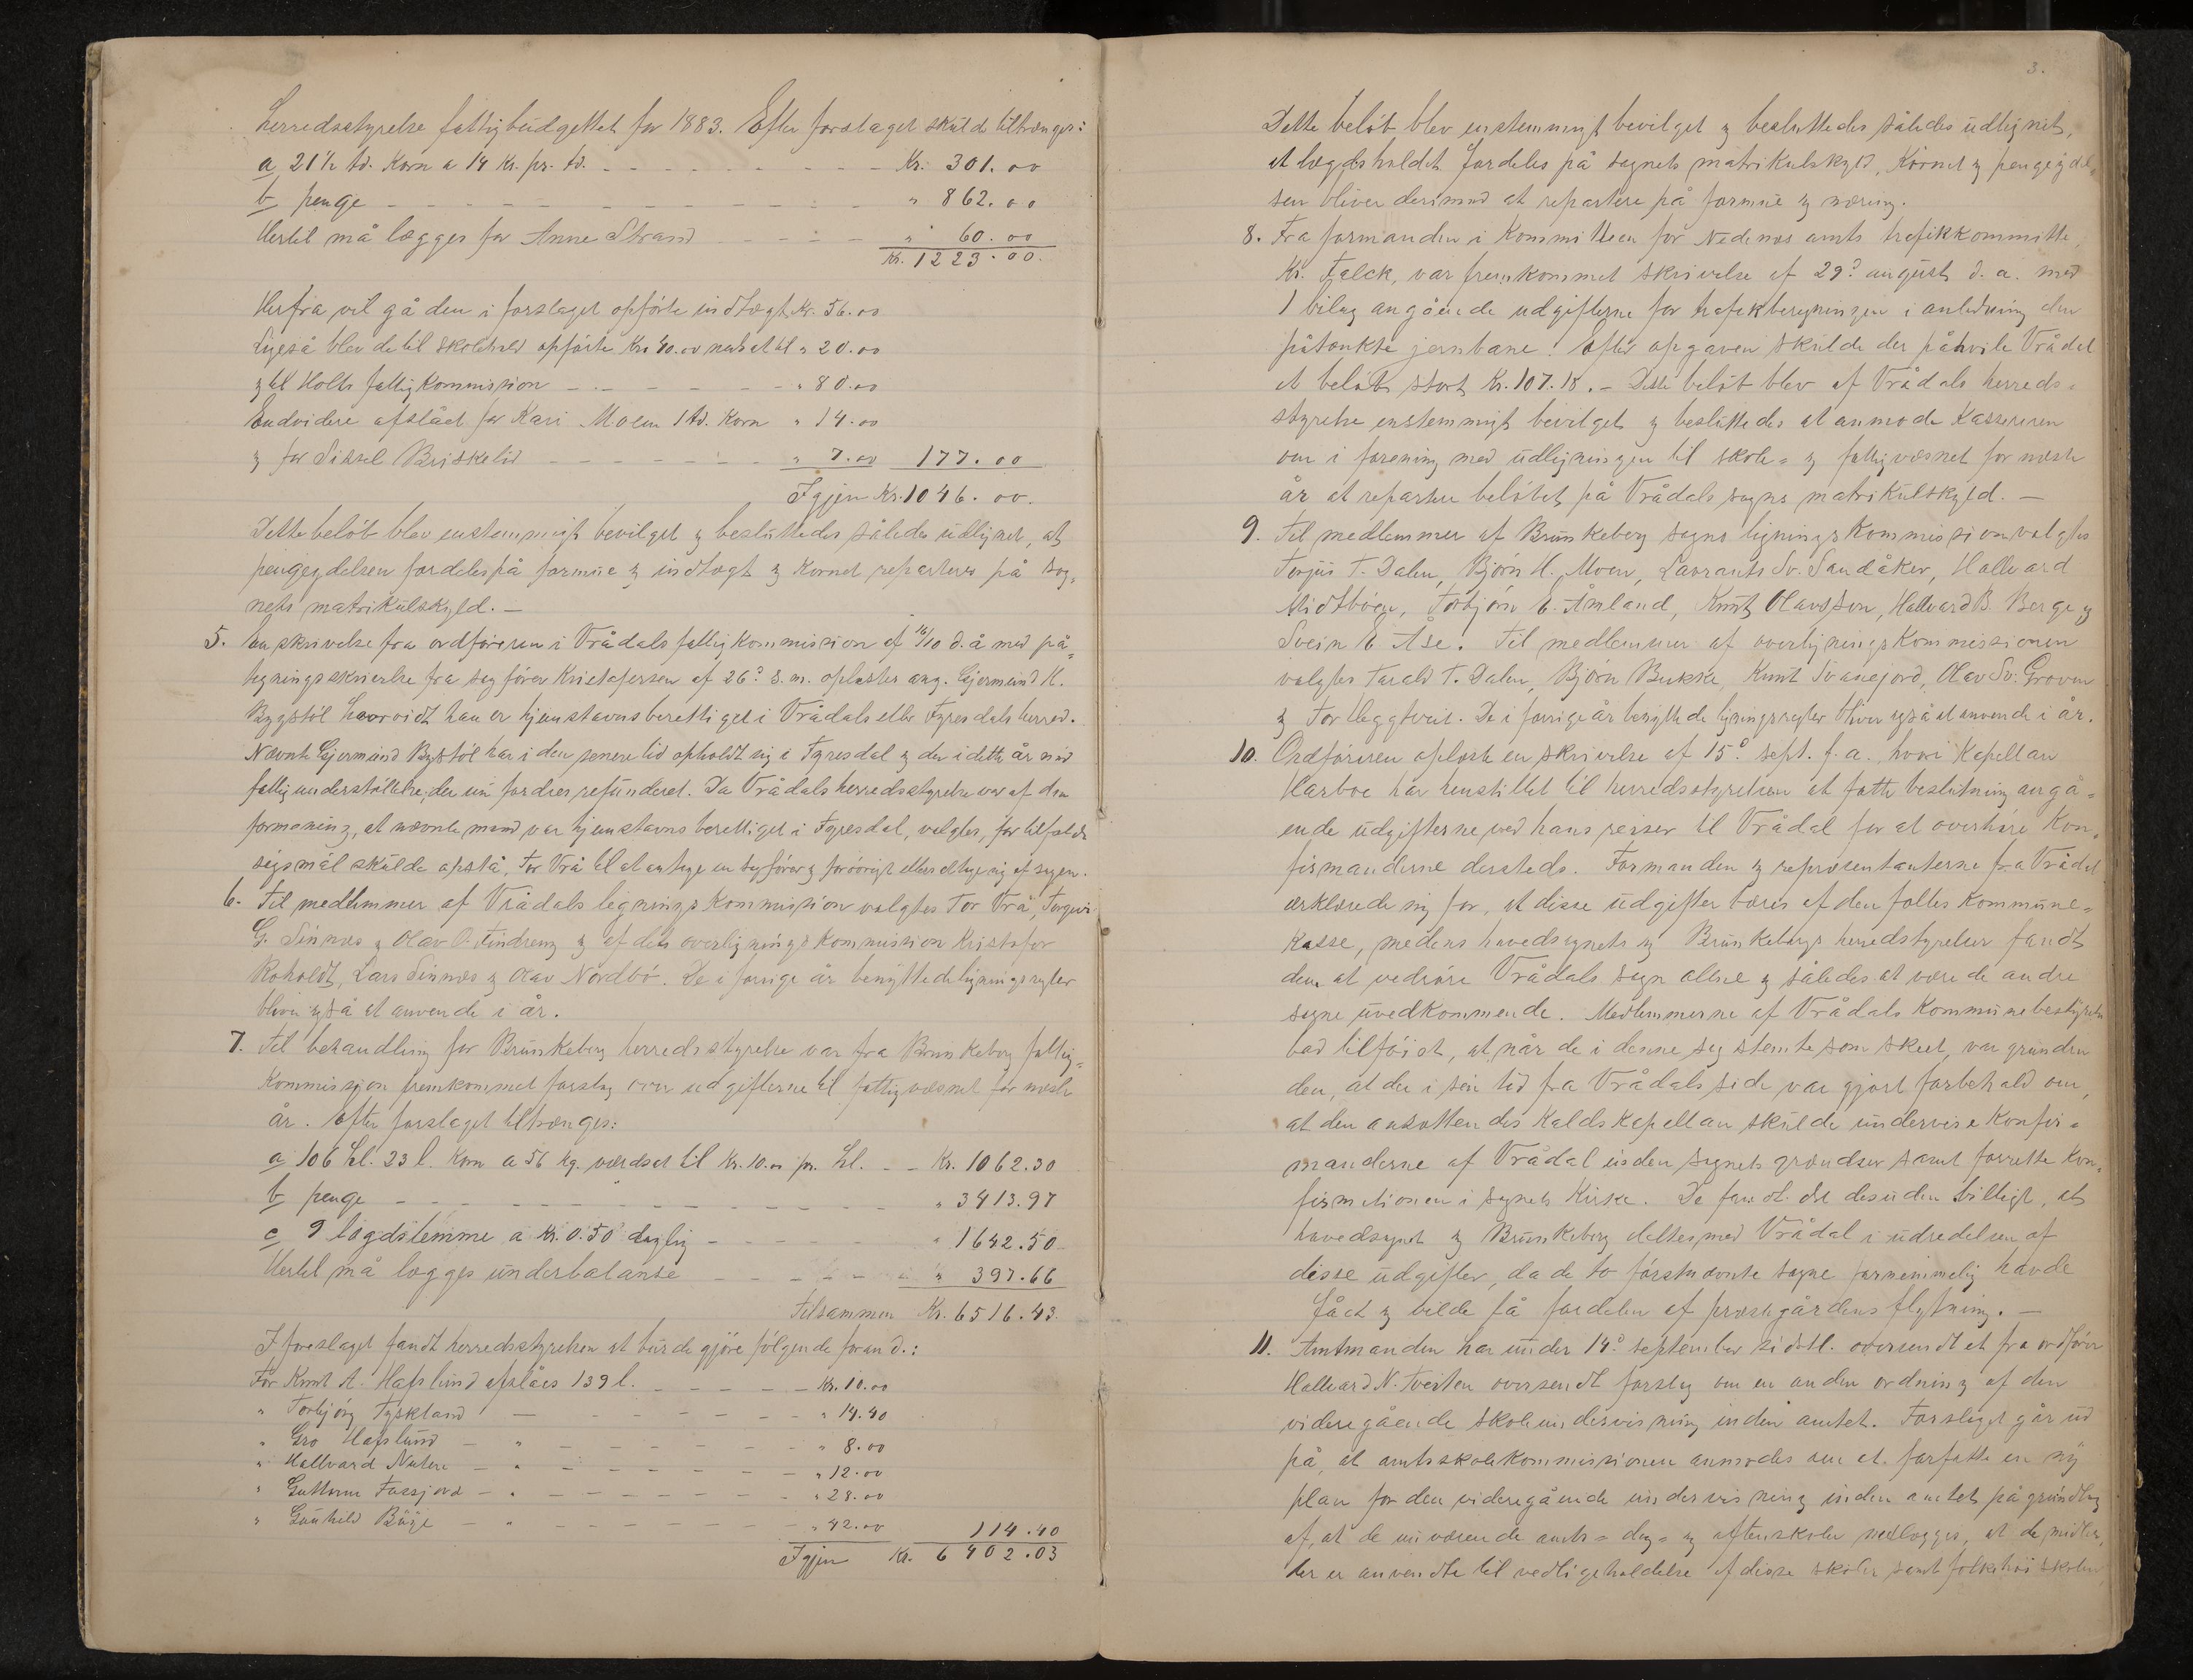 Herredsstyrelse fattigbudgettet for 1883. Efter forslaget skulde tiltrænges:
a 21½ td. Korn a 14 Kr. pr. td. - - - - - - - - - Kr. 301.00
b penge - - - - - - - - - - - - - " 862.00
Hertil må lægges for Anne Strand - - - - - " 60.00
Kr. 1223.00.
Herfra vil gå den i forslaget opförte indtægt Kr. 56.00
Ligeså blev de til skolehold opförte Kr. 40.00 nedsat til " 20.00
og til Holts fattigkommission - - - - - - " 80.00
Endvidere afslået for Kari Moen 1 td. Korn " 14.00
og for Sissel Briskelid - - - - - - " 7.00 177.00
Igjen Kr. 1046.00.
Dette belöb blev enstemmigt bevilget og besluttedes således udlignet, at
pengeydelsen fordeles på formue og indtægt og Kornet reparteres på sog=
nets matrikulskyld. —
5. En skrivelse fra ordföreren i Vrådals fattigkommission af 16/10 d. å med på=
tegningsskrivelse fra sagförer Kristofersen af 26de s. m. oplæstes ang. Gjermund K.
Bygstöl hvorvidt han er hjemstavnsberettiget i Vrådals eller Fyresdals herred.
Nævnte Gjermund Bystöl har i den senere tid opholdt sig i Fyresdal og der i dette år nød
fattigunderstöttelse, der nu fordres refunderet. Da Vrådals herredsstyrelse var af den
formening, at nævnte mand var hjemstavnsberettiget i Fyresdal, valgtes, for tilfælde
sögsmål skulde opstå, Tor Vrå til at antage en sagförer og forövrigt ellers at tage sig af sagen.
6. Til medlemmer af Vrådals ligningskommission valgtes Tor Vrå, Torgeir
G. Sinnæs og Olav O. Findreng og af den overligningskommission Kristofer
Roholdt, Lars Sinnæs og Olav Nordbö. De i forrige år benyttede ligningsregler
bliver også at anvende i år.
7. Til behandling for Brunkeberg herredsstyrelse var fra Brunkeberg fattig=
kommission fremkommet forslag over udgifterne til fattigvæsnet for næste
år. Efter forslaget tiltrænges:
a 106 hl. 23 l. Korn a 56 kg. værdsat til Kr. 10.00 pr. hl. - - Kr. 1062.30
b penge - - - - - - - - - - - - " 3413.97
c 9 lægdslemme a Kr. 0.50 daglig - - - - - - " 1642.50
Hertil må lægges underbalanse - - - - - - " 397.66
Tilsammen Kr. 6516.43.
I foreslaget fandt herredsstyrelsen at burde gjöre fölgende forand.:
For Knut A. Hafslund afslåes 139 l. - - - - - - Kr. 10.00
" Torbjörg Tyskland — - - - - - - " 14.40
" Gro Hafslund - " - - - - - - - " 8.00
" Hallvard - " - - - - - - - " 12.00
" Guttorm - " - - - - - - - " 28.00
" Gunhild Böje - " - - - - - - " 42.00 114.40
Igjen Kr. 6402.03
3.
Dette belöb blev enstemmigt bevilget og besluttedes således udlignet,
at lægdsholdet fordeles på sognets matrikulskyld, Kornet og pengeydel=
sen bliver derimod at repartere på formue og næring.
8. Fra formanden i Kommitteen for Nedenæs amts trafikkommitte,
Kr. Falck, var fremkommet skrivelse af 29de august d. a. med
1 bilag angående udgifterne for trafikberegningen i anledning den
påtænkte jernbane. Efter opgaven skulde der påhvile Vrådal
et belöb stort Kr. 107.18. – Dette belöb blev af Vrådals herreds=
styrelse enstemmigt bevilget og besluttedes at anmode Kassereren
om i forening med udligningen til skole= og fattigvæsnet for næste
år at repartere belöbet på Vrådals sogns matrikulskyld. —
9. Til medlemmer af Brunkeberg sogns ligningskommission valgtes
Torjus T. Dalen, Björn H. Moen, Lavrants Sv. Sandåker, Hallvard
Midtböen, Torbjörn E. Åmland, Knut Olavsson, Hallvard B. Berge og
Svein E Åse. Til medlemmer af overligningskommissionen
valgtes Tarald T. Dalen, Björn Bukkø, Knut Svanejord, Olav Sv. Groven
og Tor Heggtveit. De i forrige år benyttede ligningsregler bliver også at anvende i år.
10. Ordföreren oplæste en skrivelse af 15de sept. f. a., hvori Kapellan
Harboe har henstillet til herredsstyrelsen at fatte beslutning angå=
ende udgifterne ved hans reiser til Vrådal for at overhöre Kon=
firmanderne dersteds. Formanden og repræsentanterne fra Vrådal
erklærede sig for, at disse udgifter bæres af den fælles Kommune=
kasse, medens hovedsognets og Brunkebergs herredsstyrelser fandt
dem at vedröre Vrådals sogn allene og således at være de andre
sogne uvedkommende. Medlemmerne af Vrådals Kommunebestyrelse
bad tilföiet, at når de i denne sag stemte som skeet, var grunden
den, at der i sin tid fra Vrådals side var gjort forbehold om,
at den ansættendes Kaldskapellan skulde undervise Konfir=
manderne af Vrådal inden sognets grændser samt forrette Kon=
firmationen i sognets Kirke. De fandt det desuden billigt, at
hovedsognet og Brunkeberg deltes med Vrådal i udredelsen af
disse udgifter, da de to förstnævnte sogne formentlig havde
fået og vilde få fordelen af præstegårdens flytning. —
11. Amtmanden har under 14de september sidstl. oversendt et fra ordförer
Hallvard N. Tveiten oversendt forslag om en anden ordning af den
videregående skoleundervisning inden amtet. Forslaget går ud
på, at amtsskolekommissionen anmodes om at forfatte en ny
plan for den videregående undervisning inden amtet på grundlag
af, at de nuværende amts= dag= og aftenskoler nedlægges, at de midler,
der er anvendte til vedligeholdelse af disse skoler samt folkehöiskolen,